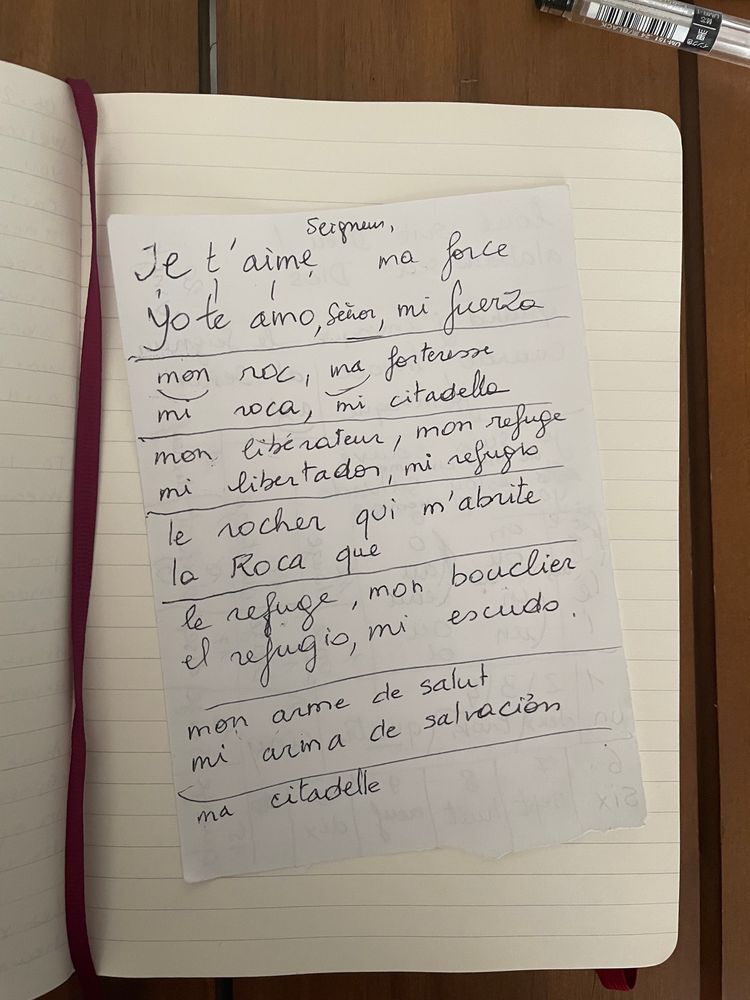 Seigneur,
Je t'aime ma force
Yo te amo, Señor, mi fuerza
mon roc, ma forteresse
mi roca, mi citadella
mon libérateur, mon refuge
mi libertador, mi refugio
le rocher qui m'abrite
la Roca que
le refuge, mon bouclier
el refugio, mi escudo.
mon arme de salut
mi arma de salvación
ma citadelle